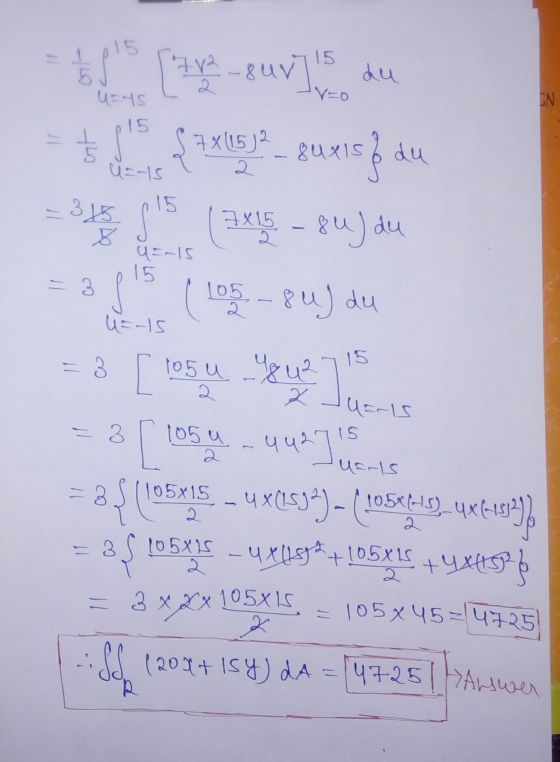 = 1/5 ∫_{u=-15}^{15} [7v²/2 - 8uv]_{v=0}^{15} du
= 1/5 ∫_{u=-15}^{15} {7×(15)²/2 - 8u×15} du
= 3 15/5 ∫_{u=-15}^{15} (7×15/2 - 8u) du
= 3 ∫_{u=-15}^{15} (105/2 - 8u) du
= 3 [105u/2 - 4 8u²/2]_{u=-15}^{15}
= 3 [105u/2 - 4u²]_{u=-15}^{15}
= 3 {(105×15/2 - 4×(15)²) - (105×(-15)/2 - 4×(-15)²)}
= 3 {105×15/2 - 4×(15)² + 105×15/2 + 4×(15)²}
= 3 × 2 × 105×15/2 = 105 × 45 = 4725
∴ ∬_R (20x + 15y) dA = 4725 → Answer